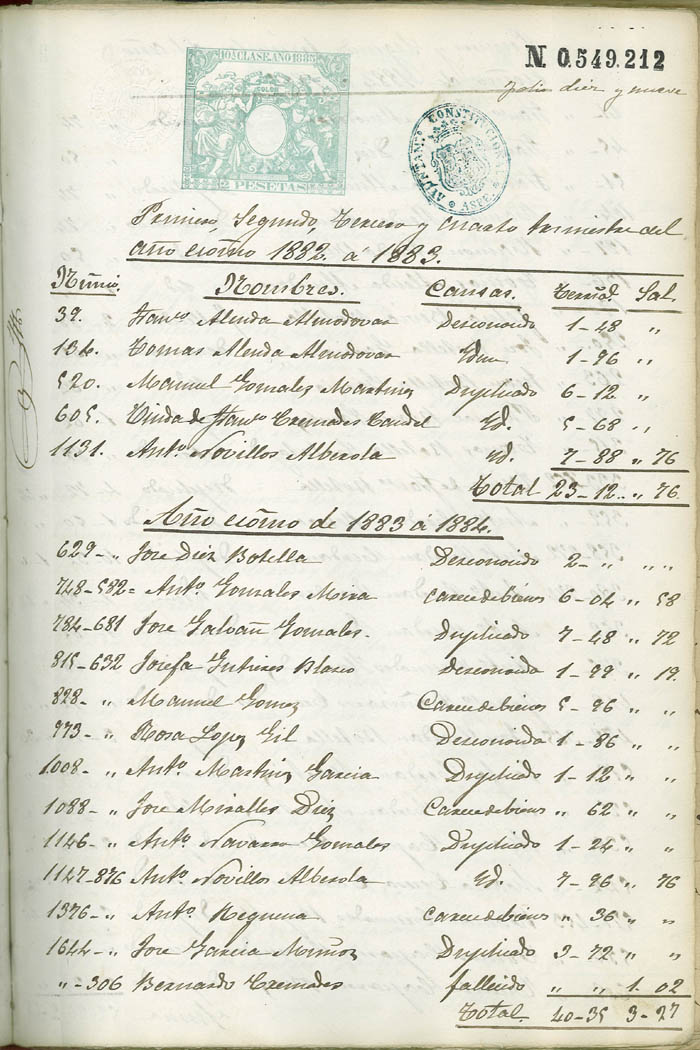 10ª CLASE. AÑO 1885
COLON
2 PESETAS
N. 0.549.212
AYUNTAMTº CONSTITUCIONAL * ASPE *
folio diez y nueve
Primero, Segundo, Tercero y cuarto trimestre del
año ecómo 1882. á 1883.
Númio. Nombres. Causas. Terrial. Sal.
39. Franco Alenda Almodovar Desconocido 1-48 „
136. Tomas Alenda Almodovar Idem 1-96 „
520. Manuel Gonzales Martinez Duplicado 6-12 „
605. Viuda de Franco Cremades Caudel Yd. 5-68 „
1131. Anto Novillos Alberola Yd. 7-88 „ 76
Total 23-12.. „ 76.
Año ecómo de 1883 á 1884.
629-„ Jose Diez Botella Desconocido 2-„ „ „
748-582= Anto. Gonzales Mira Carece de bienes 6-04 „ 58
784-681 Jose Galvañ Gonzales. Duplicado 7-48 „ 72
815-632 Josefa Gutierres Blasco Desconocida 1-99 „ 19.
828-„ Manuel Gomez Carece de bienes 5-96 „ „
973-„ Rosa Lopez Gil Desconocida 1-86 „ „
1.008-„ Anto. Martinez Garcia Duplicado 1-12 „ „
1088-„ Jose Miralles Diez Carece de bienes „ 62 „ „
1146-„ Anto. Navarro Gonzales Duplicado 1-24 „ „
1147-876 Anto. Novillos Alberola Yd. 7-96 „ 76
1376-„ Anto. Requena Carece de bienes „ 36 „ „
1644-„ Jose Garcia Muñoz Duplicado 3-72 „ „
„-306 Bernardo Cremades fallecido „ „ 1.02
Total. 40-35 3-27